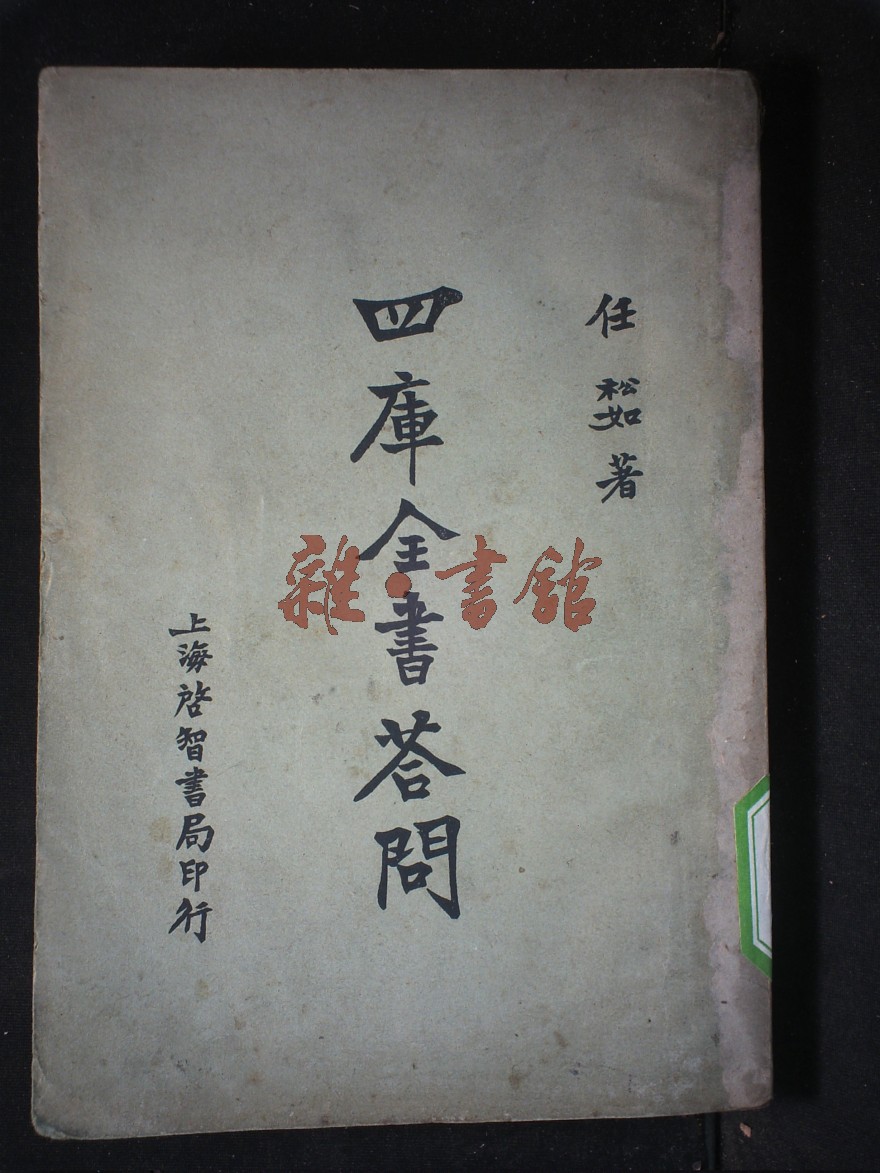 任松如著
四庫全書荅問
上海啓智書局印行
雜·書館